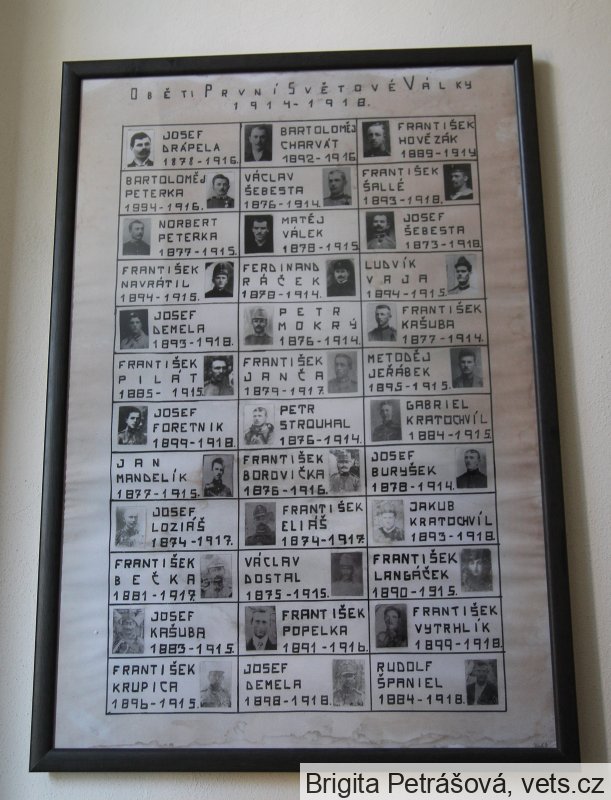 OBĚTI PRVNÍ SVĚTOVÉ VÁLKY
1914-1918.
JOSEF
DRÁPELA
1878-1916.
BARTOLOMĚJ
CHARVÁT
1892-1916
FRANTIŠEK
HOVĚZÁK
1889-1914
BARTOLOMĚJ
PETERKA
1894-1916.
VÁCLAV
ŠEBESTA
1876-1914.
FRANTIŠEK
ŠALLÉ
1893-1918.
NORBERT
PETERKA
1877-1915.
MATĚJ
VÁLEK
1878-1915.
JOSEF
ŠEBESTA
1873-1918.
FRANTIŠEK
NAVRÁTIL
1894-1915.
FERDINAND
RÁČEK
1878-1914.
LUDVÍK
VAJA
1894-1915.
JOSEF
DEMELA
1893-1918.
PETR
MOKRÝ
1876-1914.
FRANTIŠEK
KAŠUBA
1877-1914.
FRANTIŠEK
PILÁT
1885-1915.
FRANTIŠEK
JANČA
1879-1917.
METODĚJ
JEŘÁBEK
1895-1915.
JOSEF
FORETNIK
1899-1918.
PETR
STROUHAL
1876-1914.
GABRIEL
KRATOCHVÍL
1884-1915.
JAN
MANDELÍK
1877-1915.
FRANTIŠEK
BOROVIČKA
1876-1916.
JOSEF
BURYŠEK
1878-1914.
JOSEF
LOZIÁŠ
1874-1917.
FRANTIŠEK
ELIÁŠ
1874-1917.
JAKUB
KRATOCHVÍL
1893-1918.
FRANTIŠEK
BEČKA
1881-1917.
VÁCLAV
DOSTAL
1875-1915.
FRANTIŠEK
LANGÁČEK
1890-1915.
JOSEF
KAŠUBA
1883-1915.
FRANTIŠEK
POPELKA
1891-1916.
FRANTIŠEK
VYTRHLÍK
1899-1918.
FRANTIŠEK
KRUPICA
1896-1915.
JOSEF
DEMELA
1898-1918.
RUDOLF
ŠPANIEL
1884-1918.
Brigita Petrášová, vets.cz